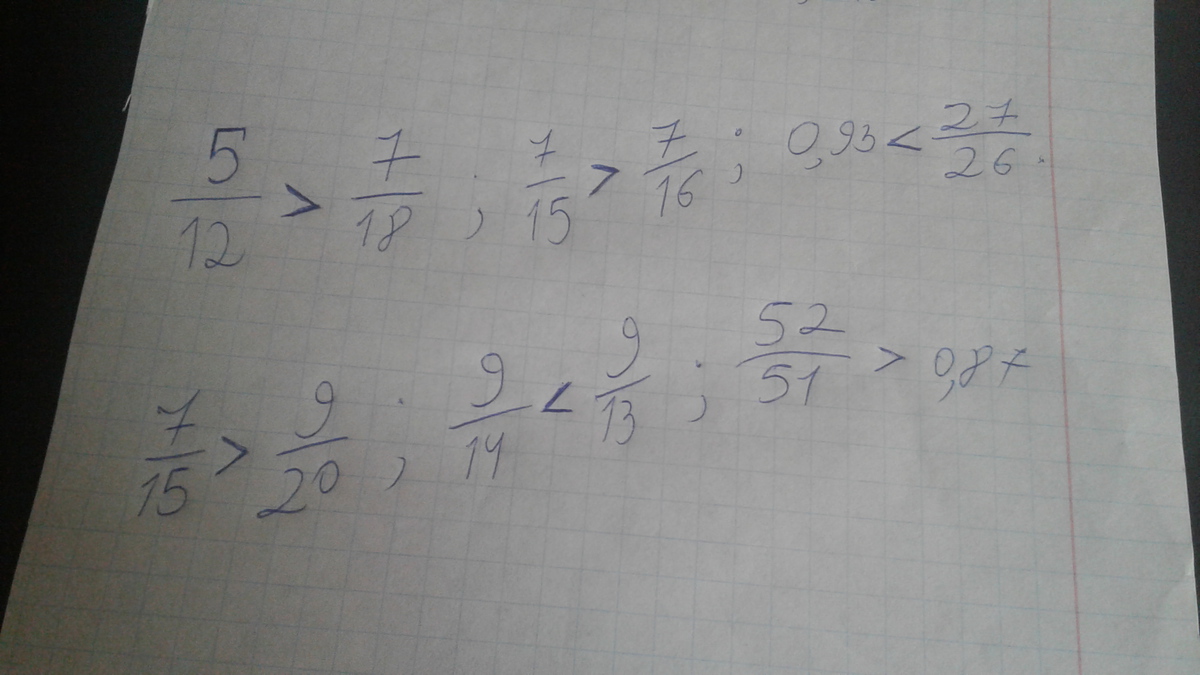 5/12 > 7/18 ; 7/15 > 7/16 ; 0,93 < 27/26.
7/15 > 9/20 ; 9/14 < 9/13 ; 52/51 > 0,87